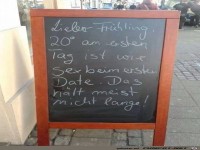 Lieber Frühling
20° am ersten
Tag ist wie
Sex beim ersten
Date. Das
hält meist
nicht lange!